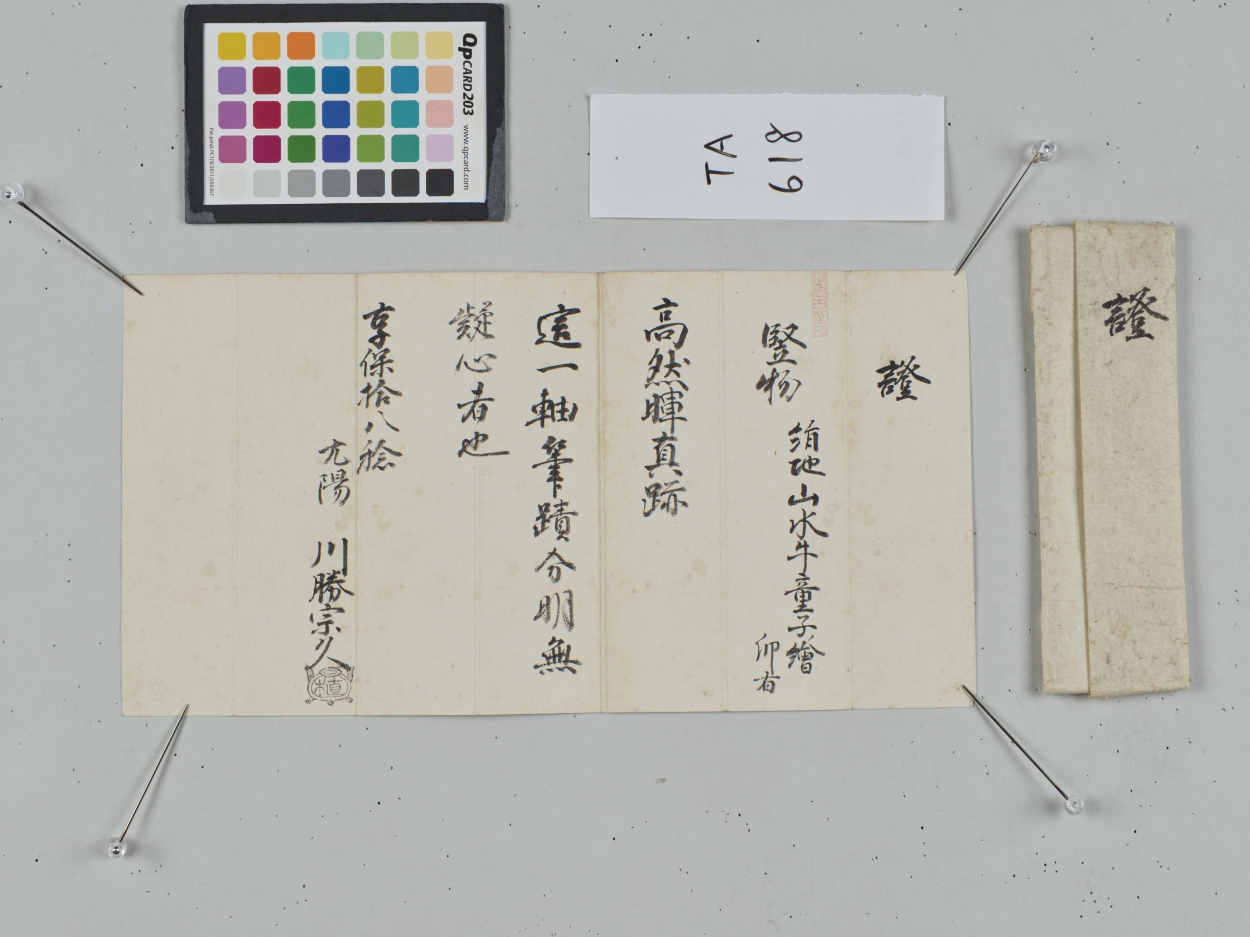 QPCARD 203
www.qpcard.com
TA
618
證
證
竪物
絹地山水牛童子繪
印有
高然暉真跡
這一軸筆蹟分明無
疑心者也
享保拾八稔
亢陽 川勝宗久